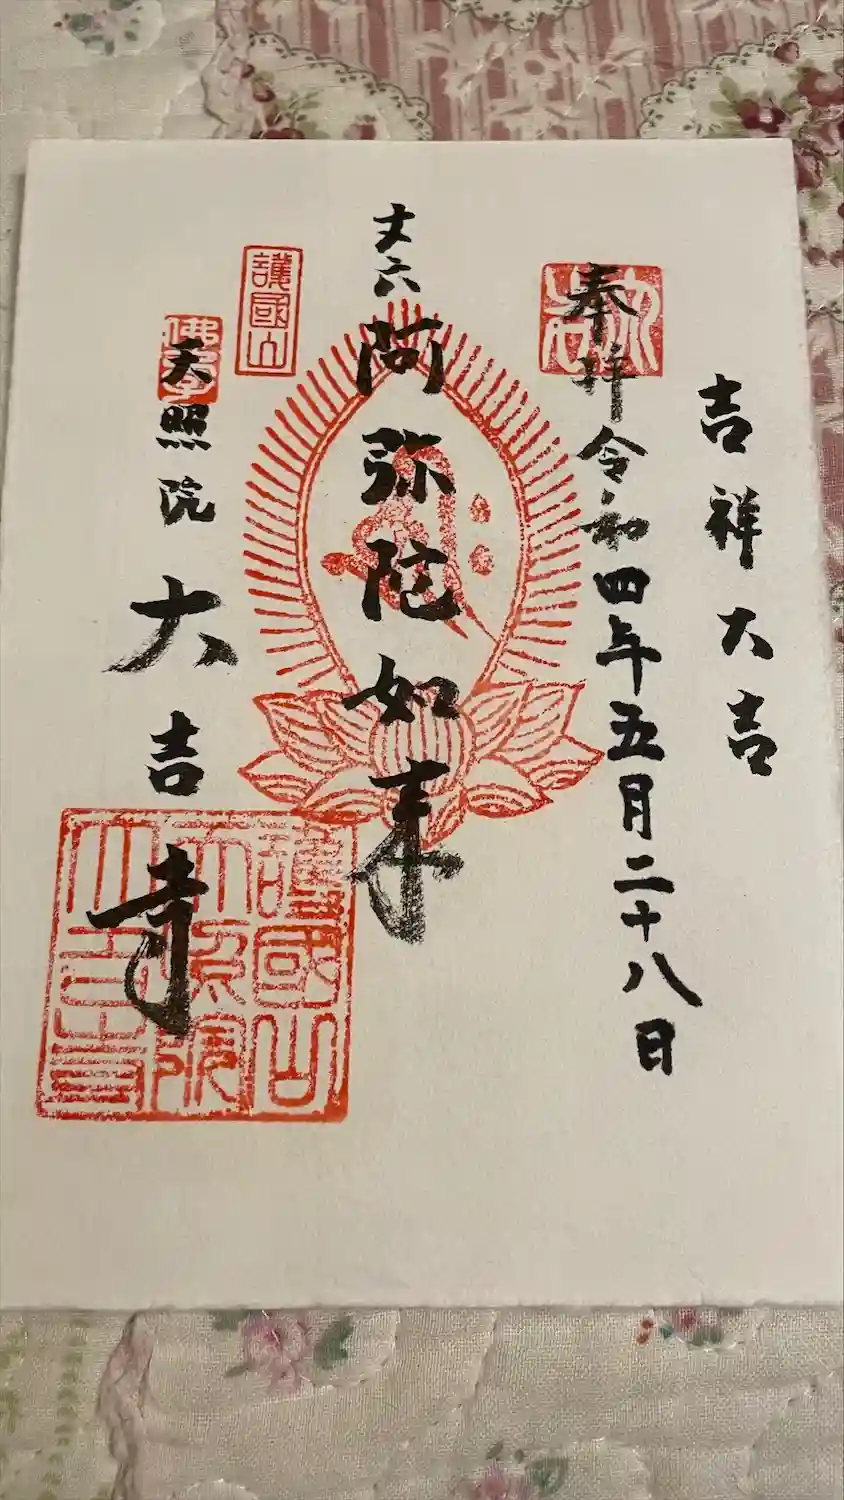 吉祥大吉
奉拝 令和四年五月二十八日
丈六 阿弥陀如来
護國山
天照院 大吉寺
護國山
天照院
大吉寺